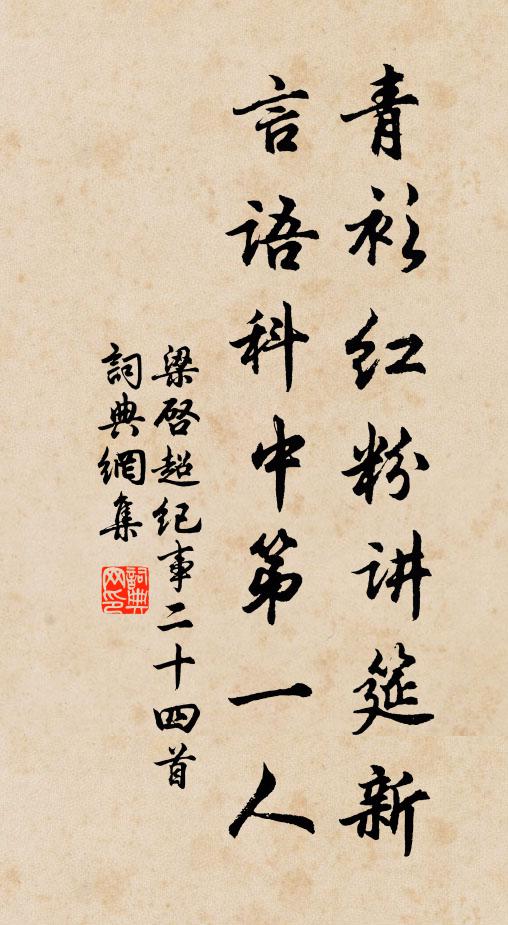 青衫红粉讲筵新
言語科中第一人
梁启超纪事二十四首
詞典網集
詞典
网印